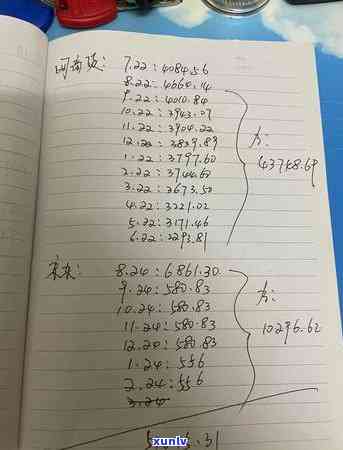 网商贷: 7.22:4084.56
8.22:4064.14
9.22:4010.84
10.22:3943.07
11.22:3904.22
12.22:3839.89
1.22:3797.60
2.22:3744.60
3.22:3673.50
4.22:3221.02
5.22:3171.46
6.22:2293.81
为:
43758.69
京东: 8.24:6861.30
9.24:580.83
10.24:580.83
11.24:580.83
12.24:580.83
1.24:556
2.24:556
3.24
为:
10296.62
xunlv